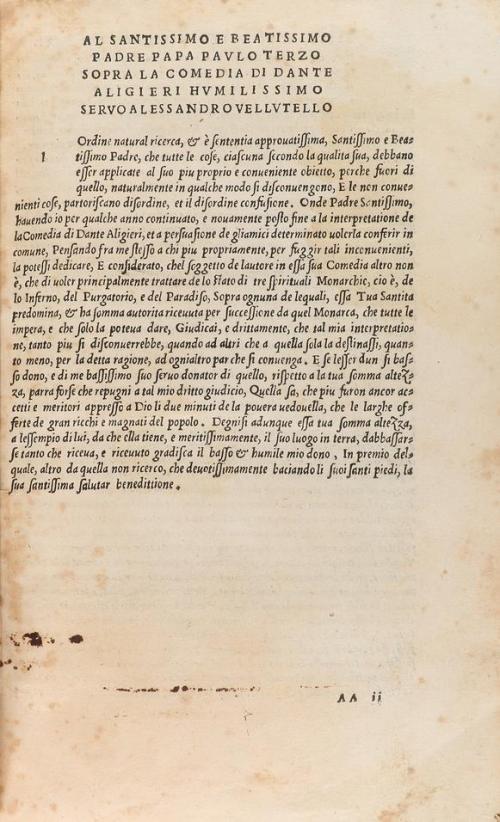 AL SANTISSIMO E BEATISSIMO
PADRE PAPA PAVLO TERZO
SOPRA LA COMEDIA DI DANTE
ALIGIERI HVMILISSIMO
SERVO ALESSANDRO VELLVTELLO
Ordine natural ricerca, & è sententia approuatissima, Santissimo e Bea-
l tissimo Padre, che tutte le cose, ciascuna secondo la qualita sua, debbano
esser applicate al suo piu proprio e conueniente obietto, perche fuori di
quello, naturalmente in qualche modo si disconuengono, E le non conue-
nienti cose, partoriscano disordine, et il disordine confusione. Onde Padre Santissimo,
hauendo io per qualche anno continuato, e nouamente posto fine a la interpretatione de
la Comedia di Dante Aligieri, et a persuasione de gliamici determinato uolerla conferir in
comune, Pensando fra me stesso a chi piu propriamente, per fuggir tali inconuenienti,
la potessi dedicare, E considerato, chel soggetto de lautore in essa sua Comedia altro non
è, che di uoler principalmente trattare de lo stato di tre spirituali Monarchie, cio è, de
lo Inferno, del Purgatorio, e del Paradiso, Sopra ognuna de lequali, essa Tua Santita
predomina, & ha somma autorita riceuuta per successione da quel Monarca, che tutte le
impera, e che solo la poteua dare, Giudicai, e drittamente, che tal mia interpretatio-
ne, tanto piu si disconuerrebbe, quando ad altri che a quella sola la destinassi, quan-
to meno, per la detta ragione, ad ognialtro par che si conuenga. E se lesser dun si bas-
so dono, e di me bassissimo suo seruo donator di quello, rispetto a la tua somma altez-
za, parra forse che repugni a tal mio dritto giudicio, Quella sa, che piu furon ancor ac-
cetti e meritori appresso a Dio li due minuti de la pouera uedouella, che le larghe of-
ferte de gran ricchi e magnati del popolo. Degnisi adunque essa tua somma altezza,
a lessempio di lui, da che ella tiene, e meritissimamente, il suo luogo in terra, dabbassar-
se tanto che riceua, e riceuuto gradisca il basso & humile mio dono, In premio del-
quale, altro da quella non ricerco, che deuotissimamente baciando li suoi santi piedi, la
sua santissima salutar benedittione.
AA ii